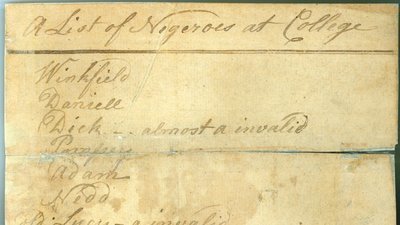 A List of Negeroes at College
Winkfield
Daniell
Dick ... almost a invalid
Pompey
Adam
Nedd
Old Lucy - a invalid